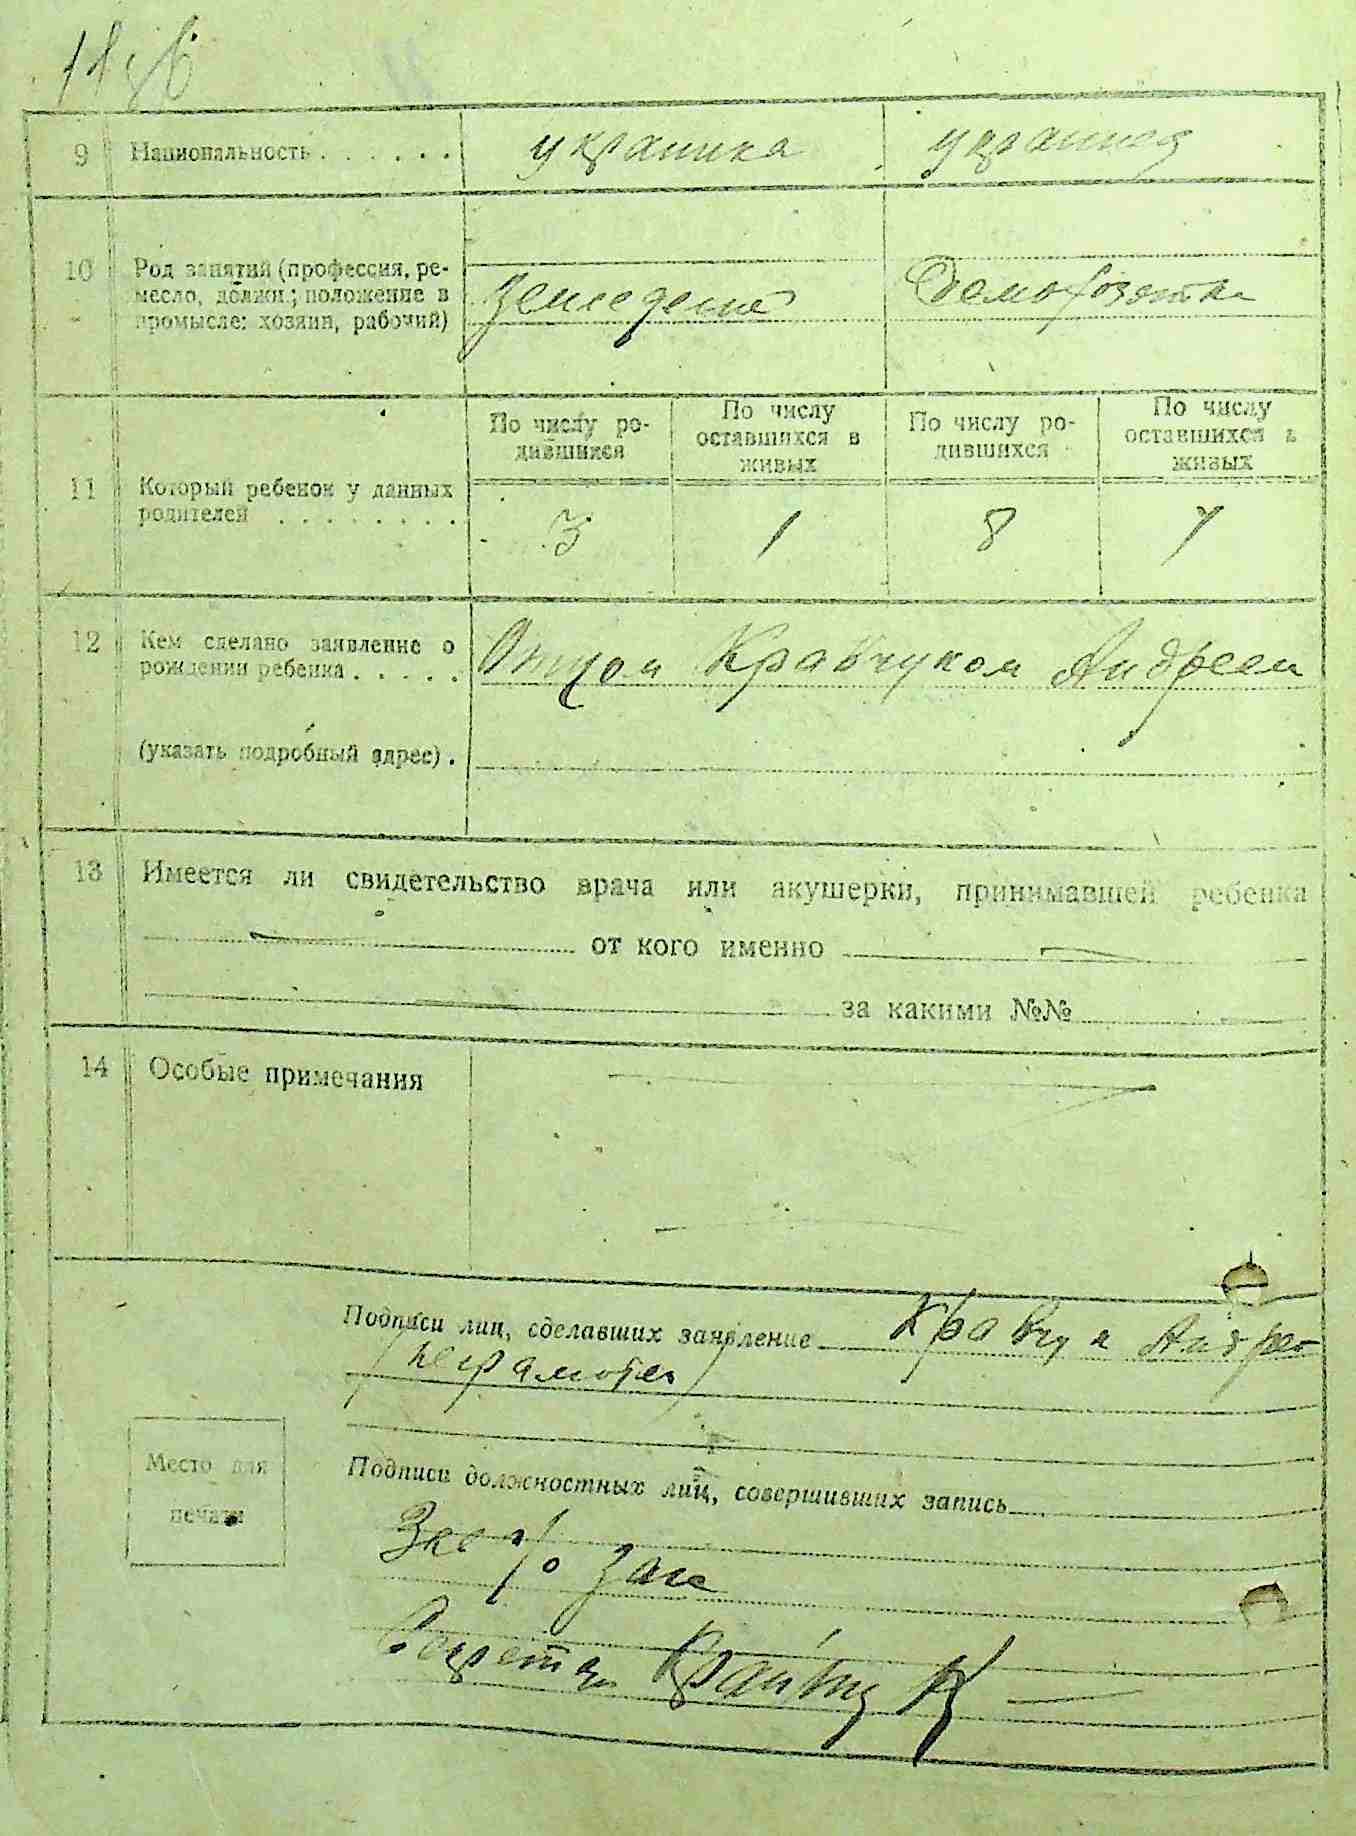 9 Национальность . . . . . . украинка украинец
10 Род занятий (профессия, ре-
месло, должн.; положение в
промысле: хозяин, рабочий)
земледелие Домохозяйка
11 Который ребенок у данных
родителей . . . . . . . .
По числу ро-
дившихся
По числу
оставшихся в
живых
По числу ро-
дившихся
По числу
оставшихся в
живых
3 1 8 7
12 Кем сделано заявление о
рождении ребенка . . . . .
Отцом Кравчуком Андреем
(указать подробный адрес) .
13 Имеется ли свидетельство врача или акушерки, принимавшей ребенка
от кого именно
за какими №№
14 Особые примечания
Подписи лиц, сделавших заявление Кравчук Андре
(неграмотен)
Место для
печати
Подписи должностных лиц, совершивших запись
Секретар